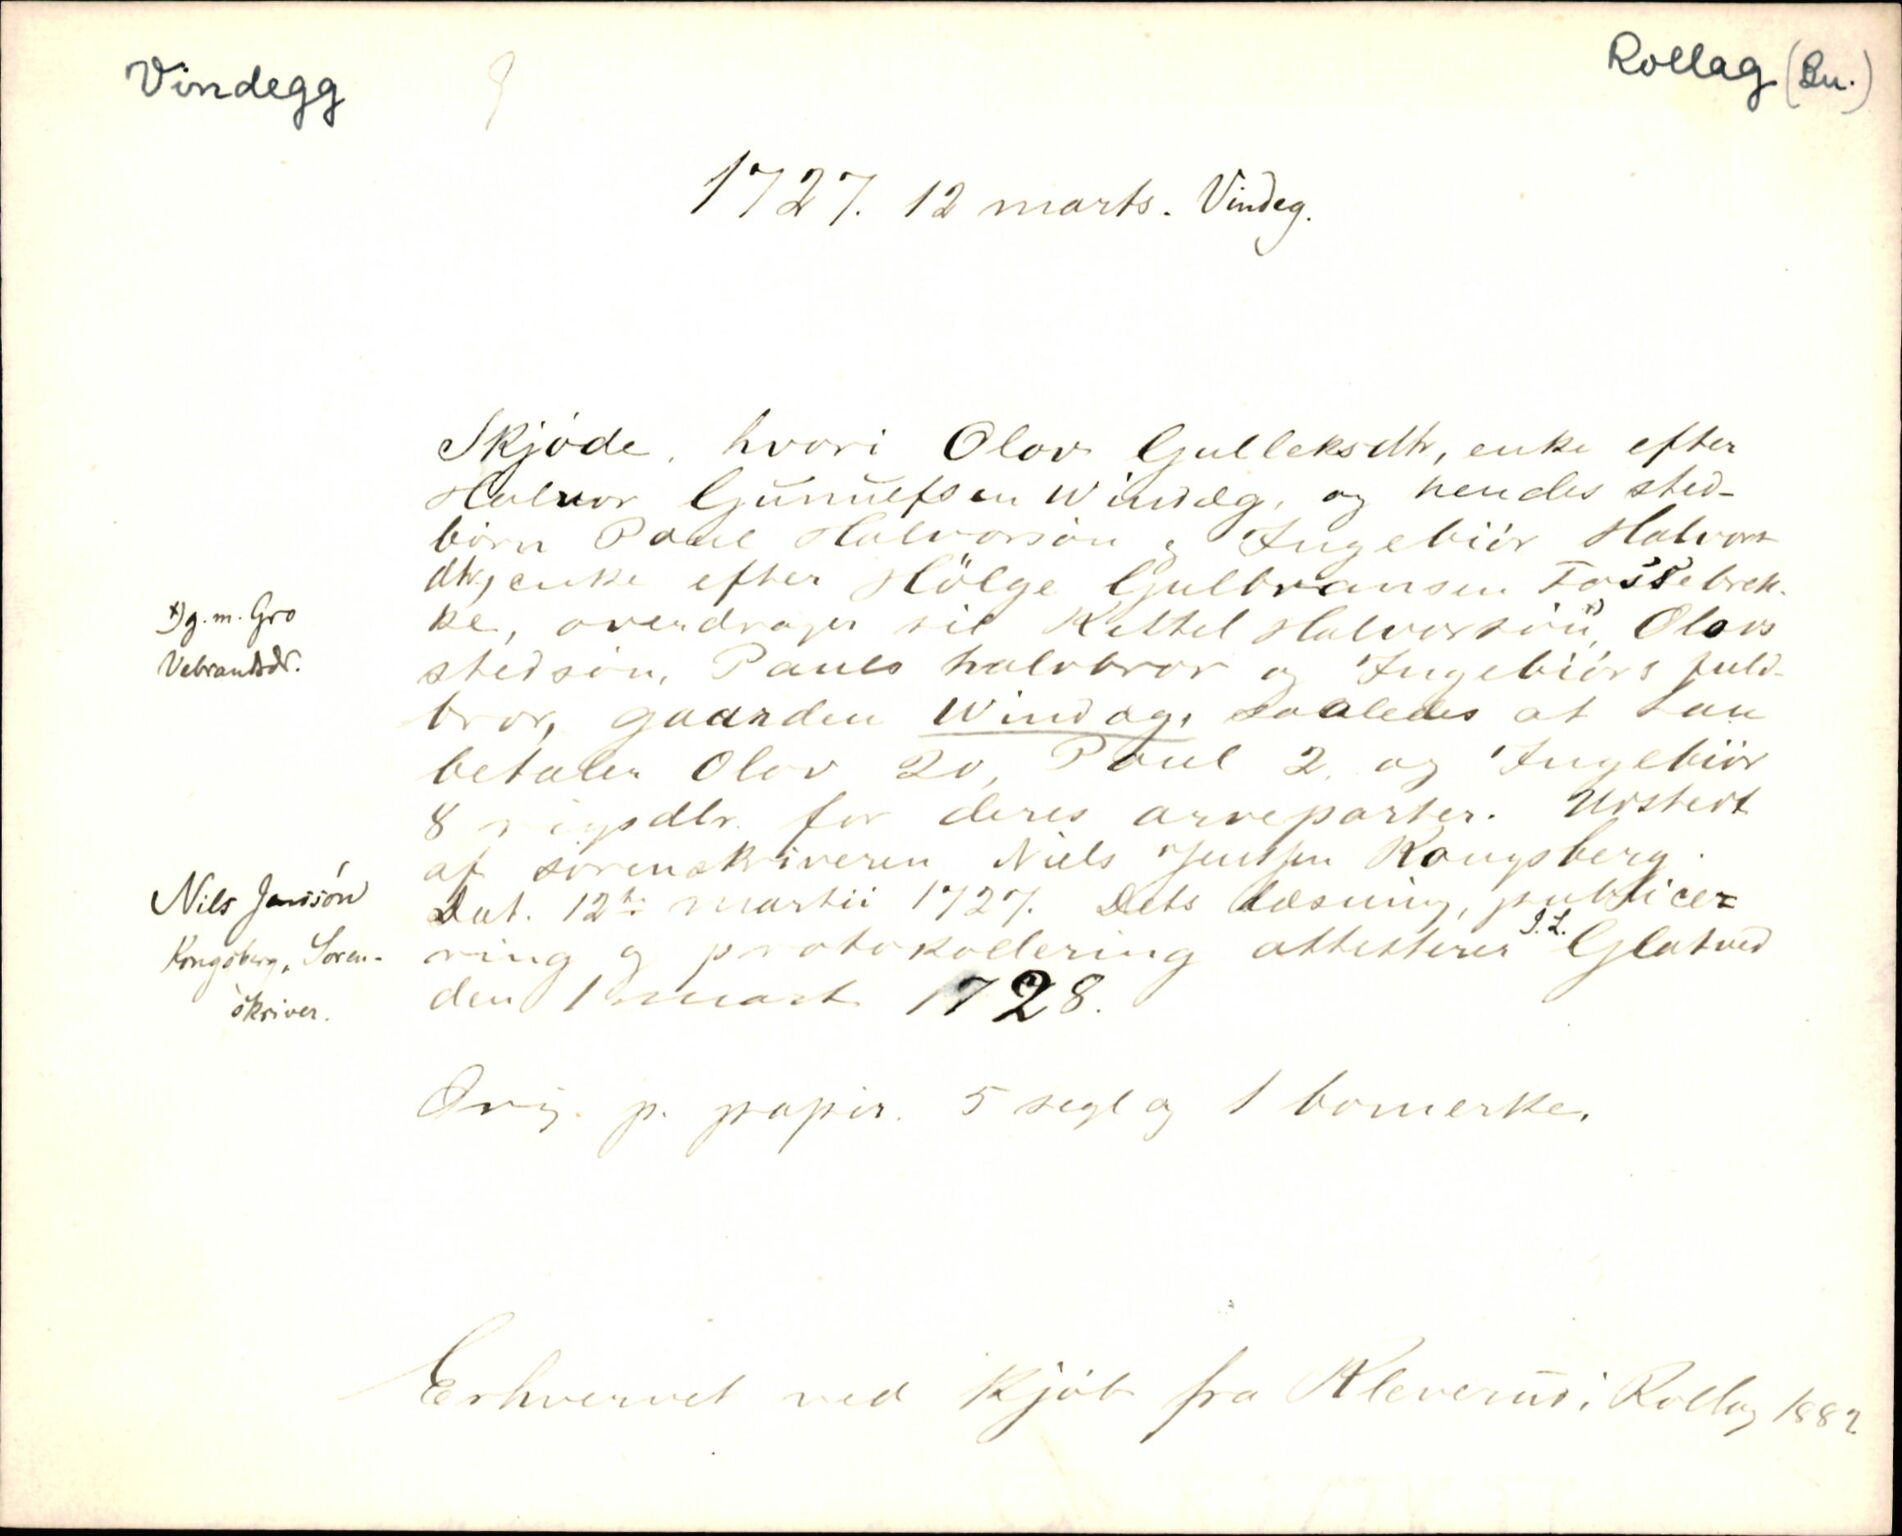 Vindegg
Rollag (Bu.)
1727. 12 marts. Vindeg.
Skjøde, hvori Olov Gulleksdtr, enke efter
Halvor Gunulfsen Windæg, og hendes sted-
børn Poul Halvorsøn & Ingebiör Halvors
dtr, enke efter Hölge Gulbransen Fossebrek-
ke, overdrager til Kittel Halvorsön x) Olovs
stedsøn, Pauls halvbror og Ingebiörs fuld-
bror, gaarden Windæg, saaledes at han
betaler Olov 20, Poul 2 og Ingebiör
8 rigsdlr. for deres arveparter. Utstedt
af sorenskriveren Niels Jensen Kongsberg.
Dat. 12te martii 1727. Dets læsning, publice=
ring og protokollering attesterer J. L. Glatved
den 1 mart 1728.
x) g. m. Gro
Vebrandsdr.
Nils Jenssón
Kongsberg, Soren-
skriver.
Orig. p. papir. 5 segl og 1 bomerke.
Erhvervet ved kjøb fra Kleverud i Rollag 1882